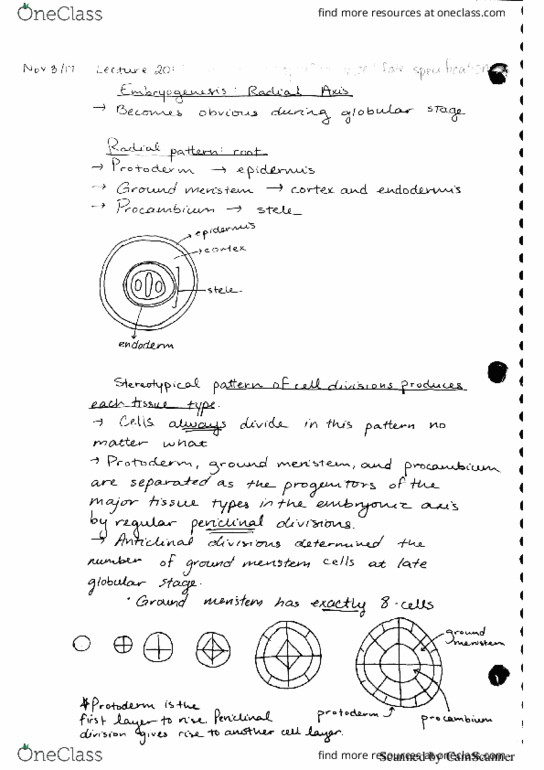 OneClass
find more resources at oneclass.com
Nov 3/17 Lecture 20: fate specification
Embryogenesis: Radial Axis
→ Becomes obvious during globular stage
Radial pattern: root
→ Protoderm → epidermis
→ Ground meristem → cortex and endodermis
→ Procambium → stele
epidermis
cortex
stele
endoderm
Stereotypical pattern of cell divisions produces
each tissue type.
→ Cells always divide in this pattern no
matter what
→ Protoderm, ground meristem, and procambium
are separated as the progenitors of the
major tissue types in the embryonic axis
by regular periclinal divisions.
→ Anticlinal divisions determined the
number of ground meristem cells at late
globular stage.
• Ground meristem has exactly 8 cells
ground
meristem
protoderm
procambium
* Protoderm is the
first layer to rise. Periclinal
division gives rise to another cell layer.
OneClass
find more resources at oneclass.com
Scanned by CamScanner